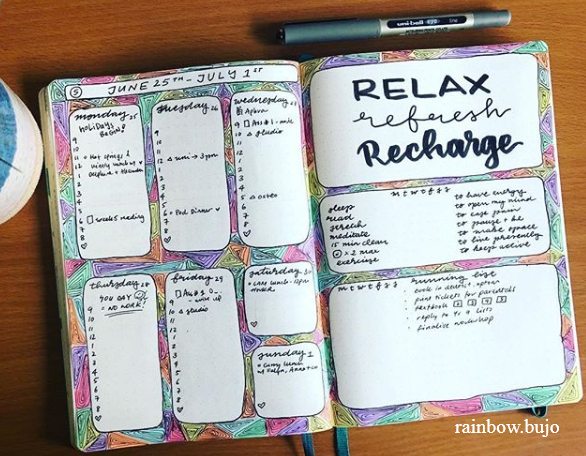 uni-ball eye fine
5 JUNE 25TH - JULY 1ST
monday 25
holidays
Begin!
9
10
11
12
1
2
3
4
5
6
7
8
□ week 5 reading
tuesday 26
9
10
11
12
1
2
3
4
5
6
7
8
→ 3pm
Dinner
wednesday
9
10
11
12
1
2
3
4
5
6
7
8
studio
thursday 28
YOU DAY
= NO WORK!
9
10
11
12
1
2
3
4
5
6
7
8
friday 29
9
10
11
12
1
2
3
4
5
6
7
8
studio
saturday
sunday 1
RELAX
refresh
Recharge
m t w t f s s
sleep
read
stretch
meditate
15 min clean
x 2 max
exercise
to have energy
to open my mind
to ease pain
to pause + be
to make space
to live presently
to keep active
m t w t f s s
running list
print tickets for parents
textbook 1 2 3 4
reply to
finalise workshop
rainbow.bujo